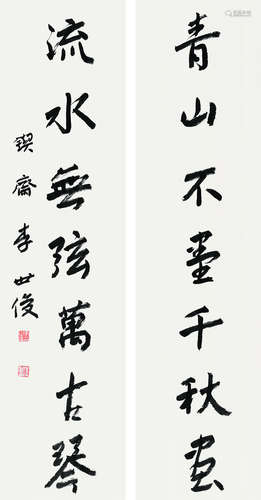 青山不墨千秋画
流水無弦萬古琴
鍥齋李世俊